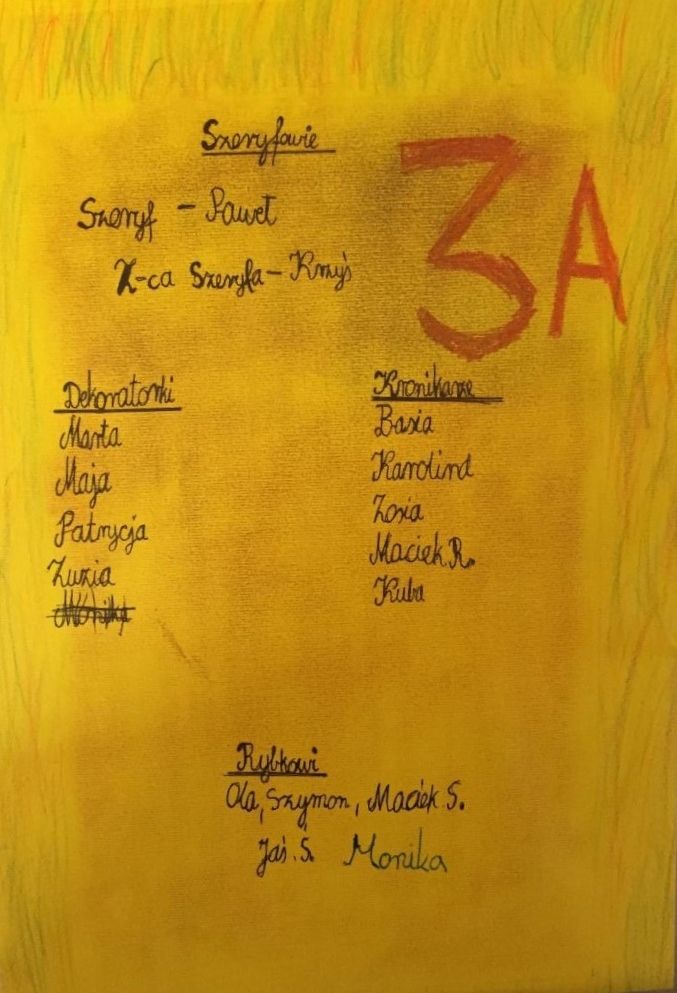 Szeryfowie
3A
Szeryf - Paweł
Z-ca Szeryfa - Krzyś
Dekoratorki
Marta
Maja
Patrycja
Zuzia
Monika
Kronikarze
Basia
Karolina
Zosia
Maciek R.
Kuba
Rybkowi
Ola, Szymon, Maciek S.
Jaś. Ś. Monika